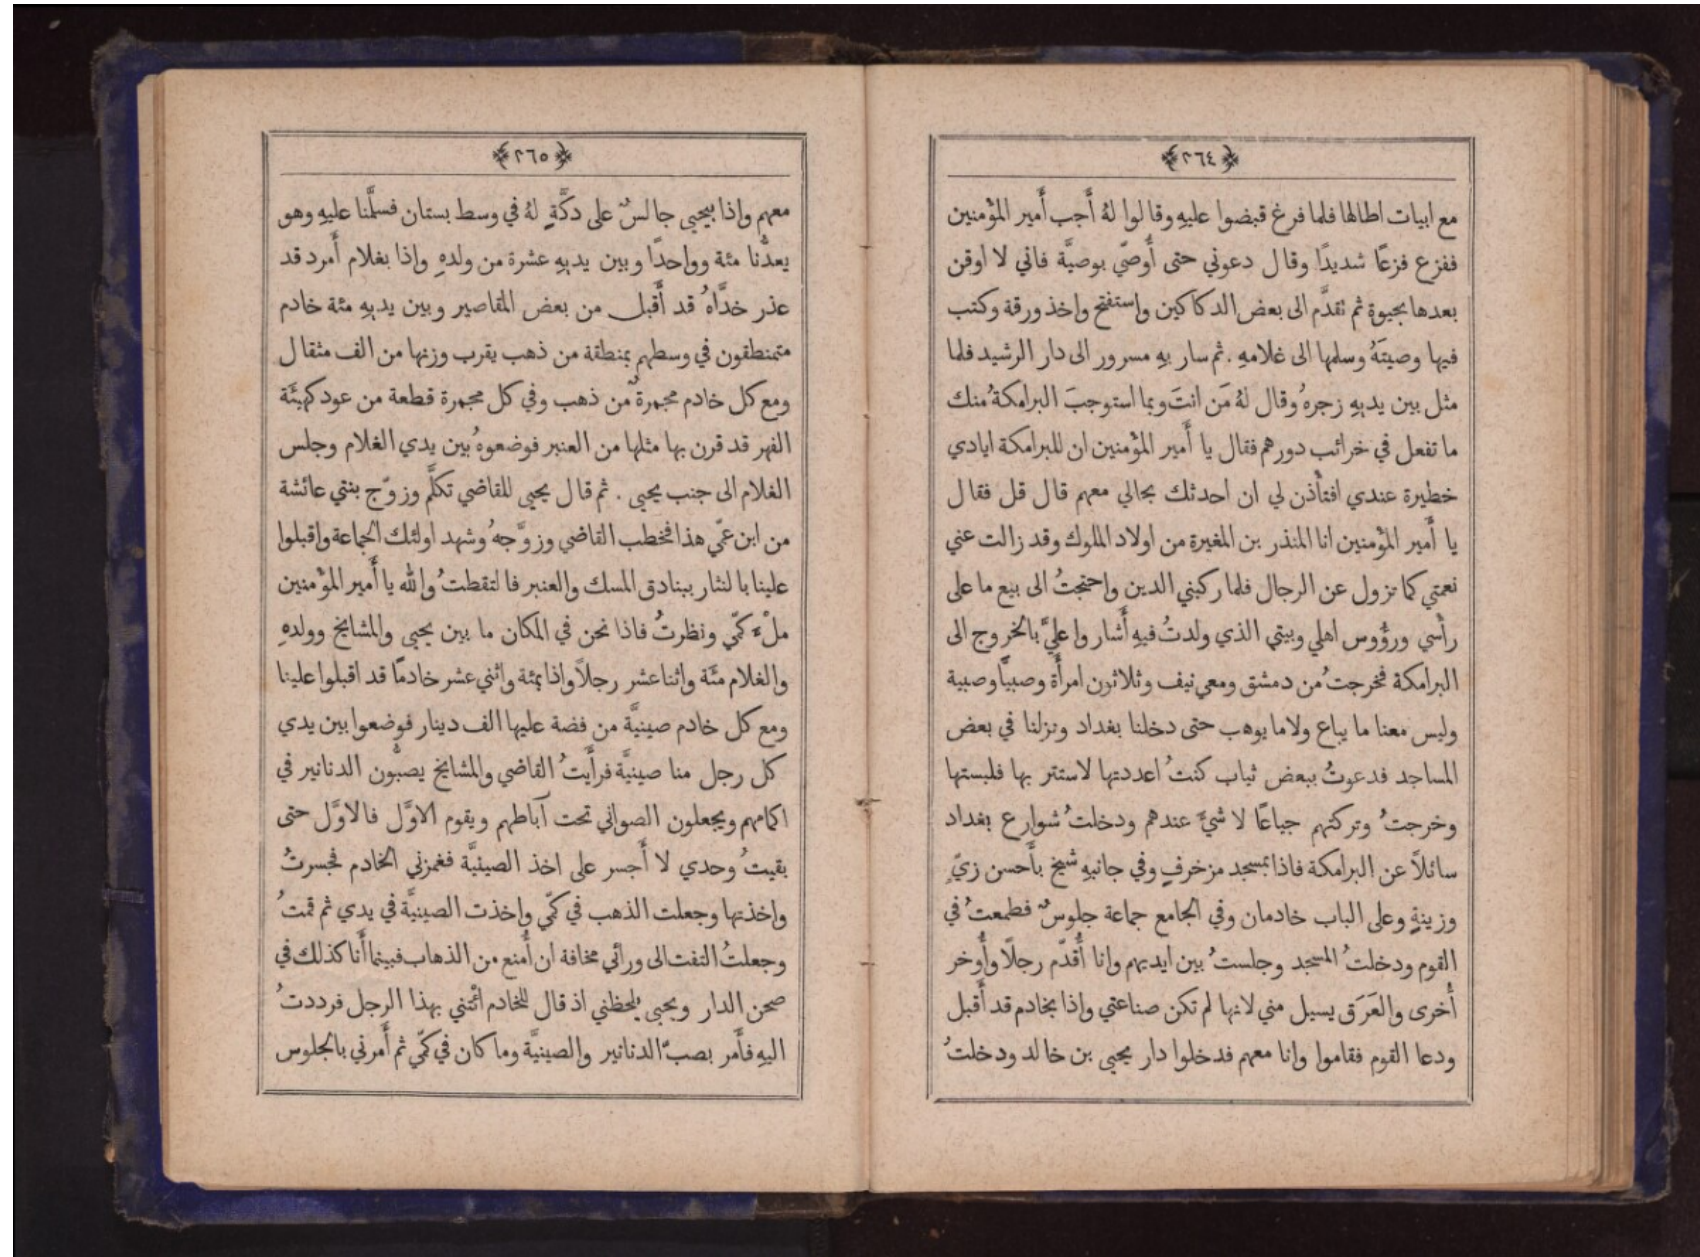 ﴿٢٦٤﴾
مع ابيات اطالها فلما فرغ قبضوا عليهِ وقالوا لهُ أَجب أَمير المؤْمنين
ففزع فزعًا شديدًا وقال دعوني حتى أُوصّي بوصيَّة فاني لا اوقن
بعدها بحيوة ثم نقدَّم الى بعض الدكاكين واستفتح واخذ ورقة وكتب
فيها وصيتَهُ وسلمها الى غلامهِ . ثم سار بهِ مسرور الى دار الرشيد فلما
مثل بين يديهِ زجرهُ وقال لهُ مَن انتَ وبما استوجبَ البرامكةُ منك
ما تفعل في خرائب دورهم فقال يا أَمير المؤْمنين ان للبرامكة ايادي
خطيرة عندي افتأْذن لي ان احدثك بحالي معهم قال قل فقال
يا أَمير المؤْمنين انا المنذر بن المغيرة من اولاد الملوك وقد زالت عني
نعمتي كما تزول عن الرجال فلما ركبني الدين واحتجتُ الى بيع ما على
رأْسي ورؤُوس اهلي وبيتي الذي ولدتُ فيهِ أَشاروا عليَّ بالخروج الى
البرامكة فخرجتُ من دمشق ومعي نيف وثلاثون امرأَة وصبيًّا وصبية
وليس معنا ما يباع ولا ما يوهب حتى دخلنا بغداد ونزلنا في بعض
المساجد فدعوتُ ببعض ثياب كنتُ اعددتها لاستتر بها فلبستها
وخرجتُ وتركتهم جياعًا لا شيَّ عندهم ودخلتُ شوارع بغداد
سائلاً عن البرامكة فاذا بمسجد مزخرفٍ وفي جانبهِ شيخ بأَحسن زيّ
وزينةٍ وعلى الباب خادمان وفي الجامع جماعة جلوسٌ فطمعتُ في
القوم ودخلتُ المسجد وجلستُ بين ايديهم وانا أُقدّم رجلًا وأُوخر
أُخرى والعَرَق يسيل مني لانها لم تكن صناعتي واذا بخادم قد أَقبل
ودعا القوم فقاموا وانا معهم فدخلوا دار يحيى بن خالد ودخلتُ
﴿٢٦٥﴾
معهم واذا بيحيى جالسٌ على دكَّةٍ لهُ في وسط بستان فسلَّمنا عليهِ وهو
يعدُّنا مئة وواحدًا وبين يديهِ عشرة من ولدهِ واذا بغلام أَمرد قد
عذر خدَّاهُ قد أَقبل من بعض المقاصير وبين يديهِ مئة خادم
متمنطقون في وسطهم بمنطقة من ذهب يقرب وزنها من الف مثقال
ومع كل خادم مجمرةٌ من ذهب وفي كل مجمرة قطعة من عود كهيئَة
الفهر قد قرن بها مثلها من العنبر فوضعوهُ بين يدي الغلام وجلس
الغلام الى جنب يحيى . ثم قال يحيى للقاضي تكلَّم وزوّج بنتي عائشة
من ابن عمّي هذا فخطب القاضي وزوَّجهُ وشهد اولئك الجماعة واقبلوا
علينا بالنثار ببنادق المسك والعنبر فالتقطتُ والله يا أَمير المؤْمنين
ملْءَ كمّي ونظرتُ فاذا نحن في المكان ما بين يحيى والمشايخ وولدهِ
والغلام مئَة واثنا عشر رجلاً واذا بمئة واثني عشر خادمًا قد اقبلوا علينا
ومع كل خادم صينيَّة من فضة عليها الف دينار فوضعوا بين يدي
كل رجل منا صينيَّة فرأَيتُ القاضي والمشايخ يصبُّون الدنانير في
اكمامهم ويجعلون الصواني تحت آباطهم ويقوم الاوَّل فالاوَّل حتى
بقيتُ وحدي لا أَجسر على اخذ الصينيَّة فغمزني الخادم فجسرتُ
واخذتها وجعلت الذهب في كمّي واخذت الصينيَّة في يدي ثم قمتُ
وجعلتُ التفت الى ورائي مخافة ان أُمنع من الذهاب فبينما أَنا كذلك في
صحن الدار ويحيى يلحظني اذ قال للخادم ائْتني بهذا الرجل فرددتُ
اليهِ فأَمر بصبّ الدنانير والصينيَّة وما كان في كمّي ثم أَمرني بالجلوس